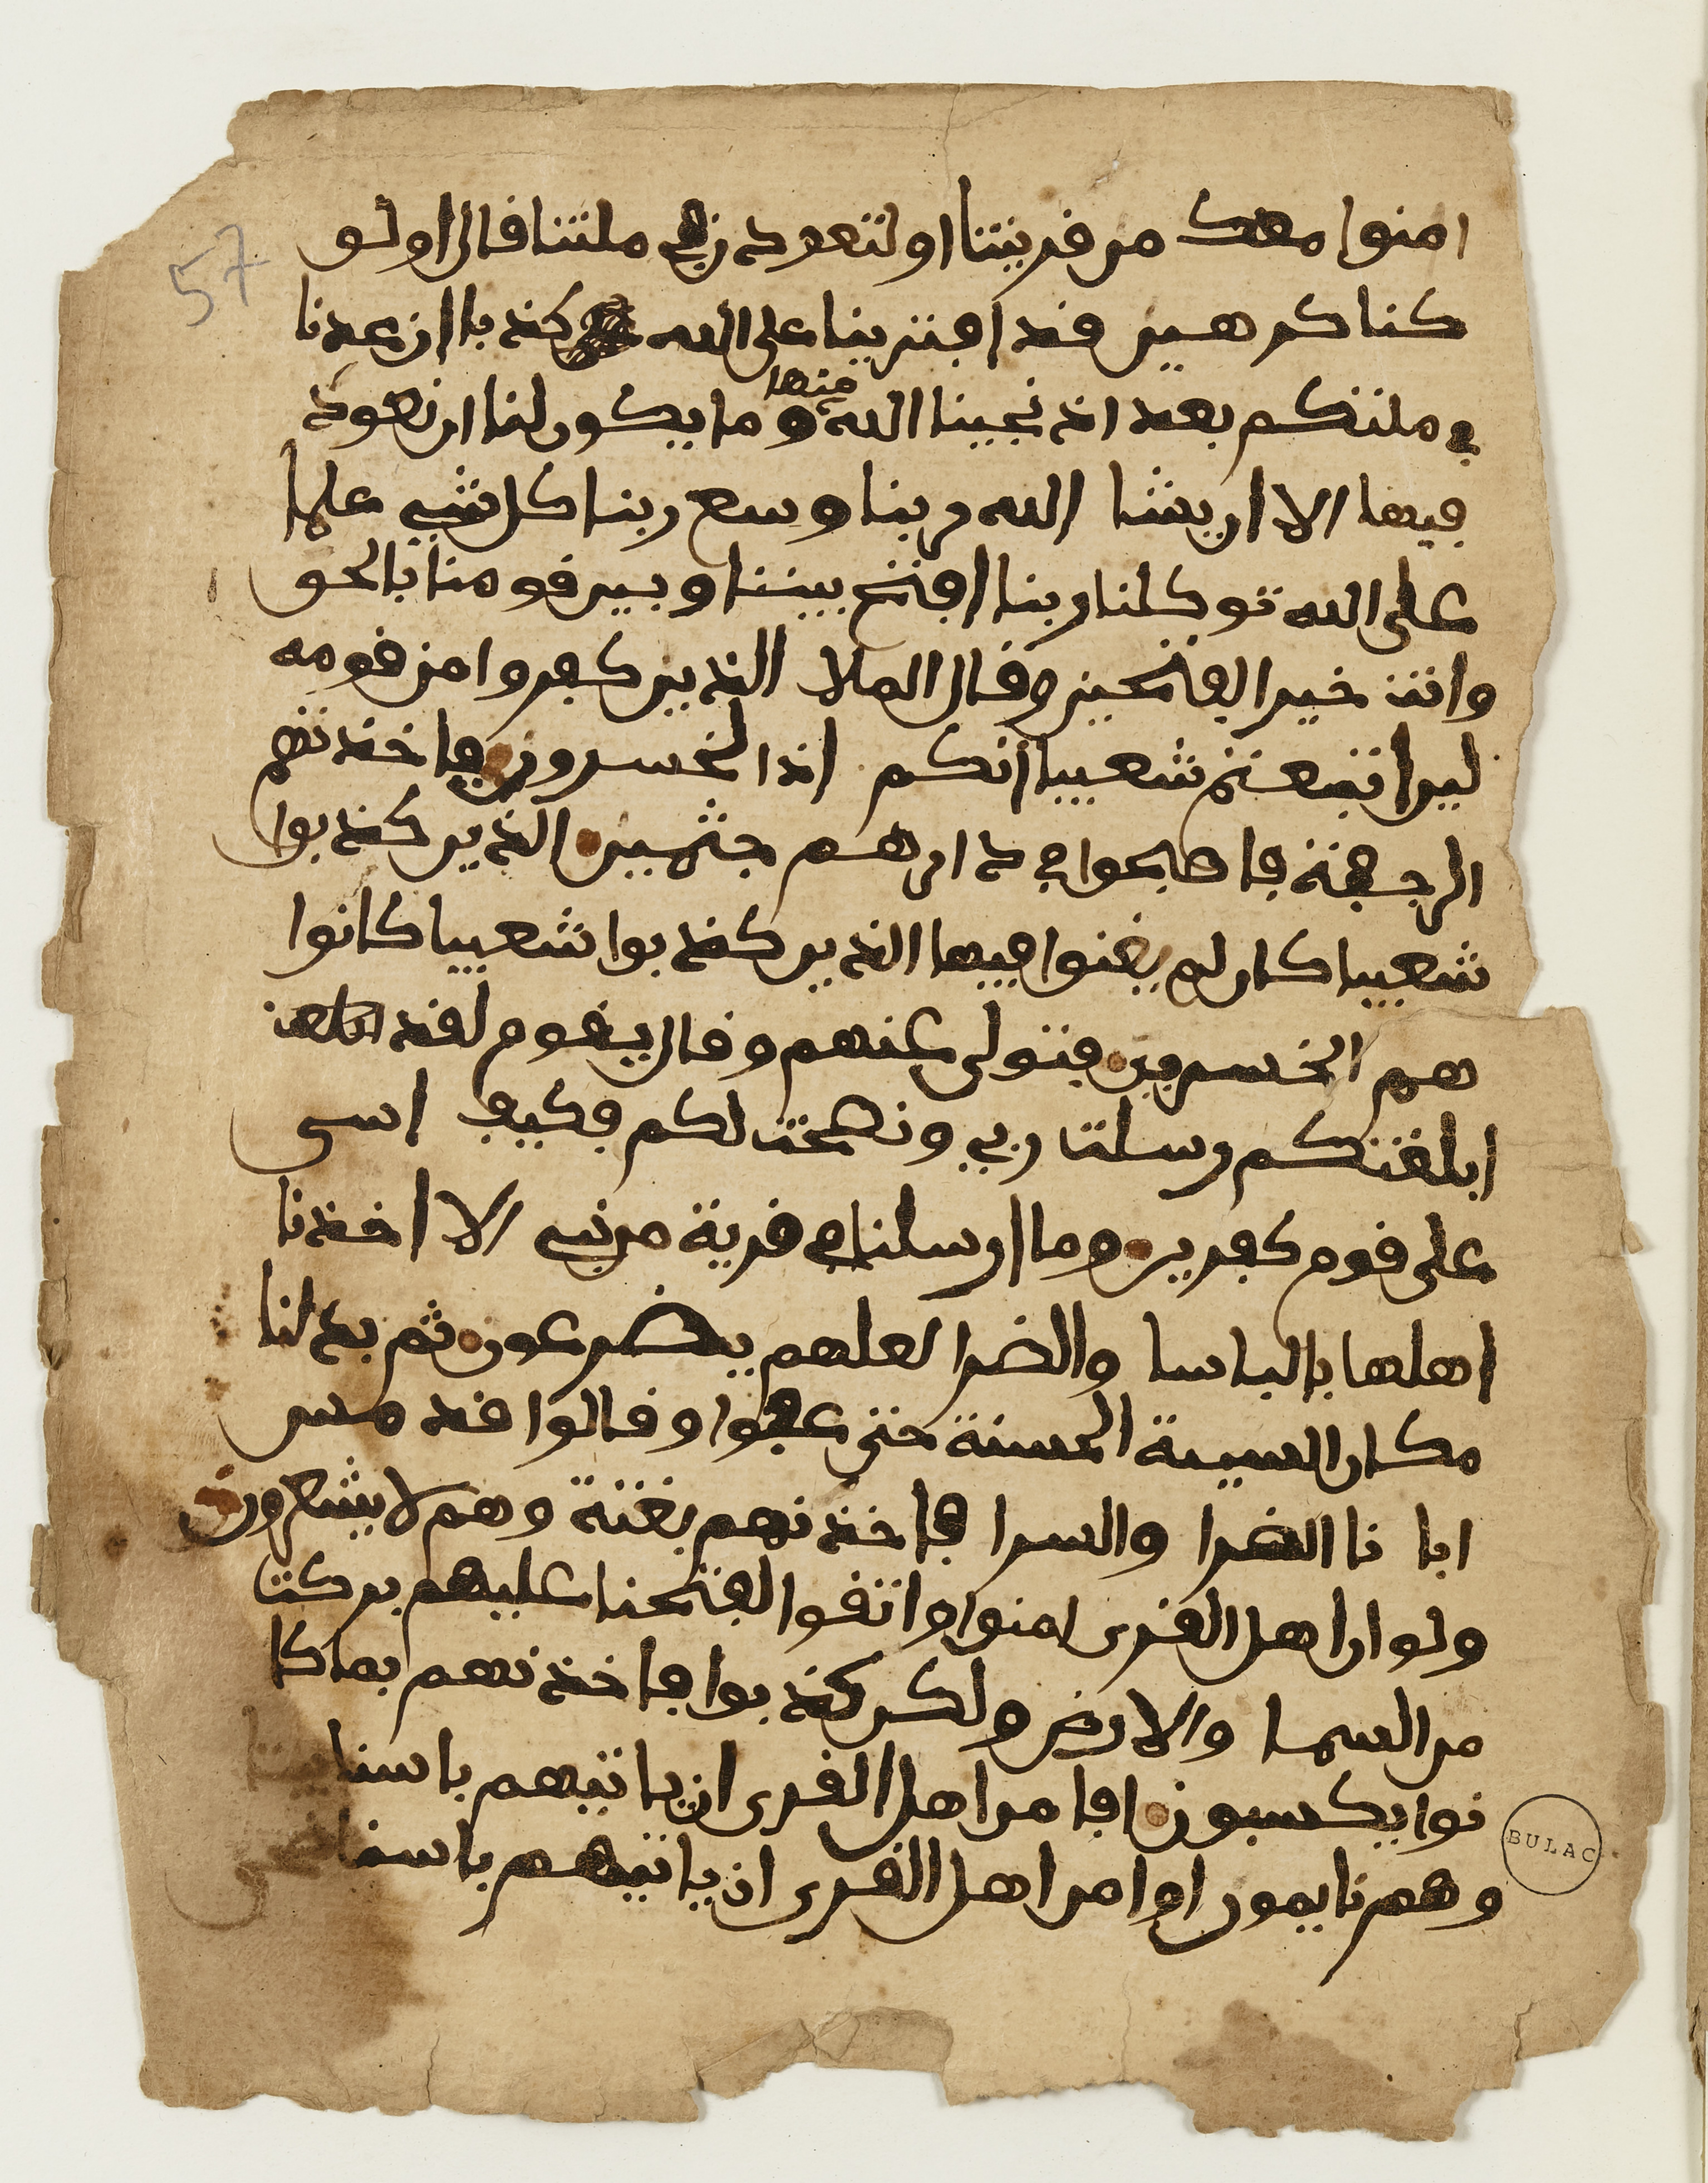 57
امنوا معك من قريتنا او لتعودن في ملتنا قال اولو
كنا كرهين قد افترينا على الله كذبا ان عدنا
في ملتكم بعد اذ نجينا الله منها وما يكون لنا ان نعود
فيها الا ان يشا الله ربنا وسع ربنا كل شي علما
على الله توكلنا ربنا افتح بيننا وبين قومنا بالحق
وانت خير الفتحين وقال الملا الذين كفروا من قومه
لين اتبعتم شعيبا انكم اذا لخسرون فاخذتهم
الرجفة فاصبحوا في دارهم جثمين الذين كذبوا
شعيبا كان لم يغنوا فيها الذين كذبوا شعيبا كانوا
هم الخسرين فتولى عنهم وقال يقوم لقد
ابلغتكم رسلت ربي ونصحت لكم فكيف اسى
على قوم كفرين وما ارسلنا في قرية من نبي الا اخذنا
اهلها بالباسا والضرا لعلهم يضرعون ثم بدلنا
مكان السيية الحسنة حتى عفوا وقالوا قد مس
ابا نا الضرا والسرا فاخذنهم بغتة وهم لا يشعرون
ولو ان اهل القرى امنوا واتقوا لفتحنا عليهم بركت
من السما والارض ولكن كذبوا فاخذنهم بما كا
نوا يكسبون افامن اهل القرى ان ياتيهم باسنا بيتا
وهم نايمون اوامن اهل القرى ان ياتيهم باسنا ضحى
BULAC